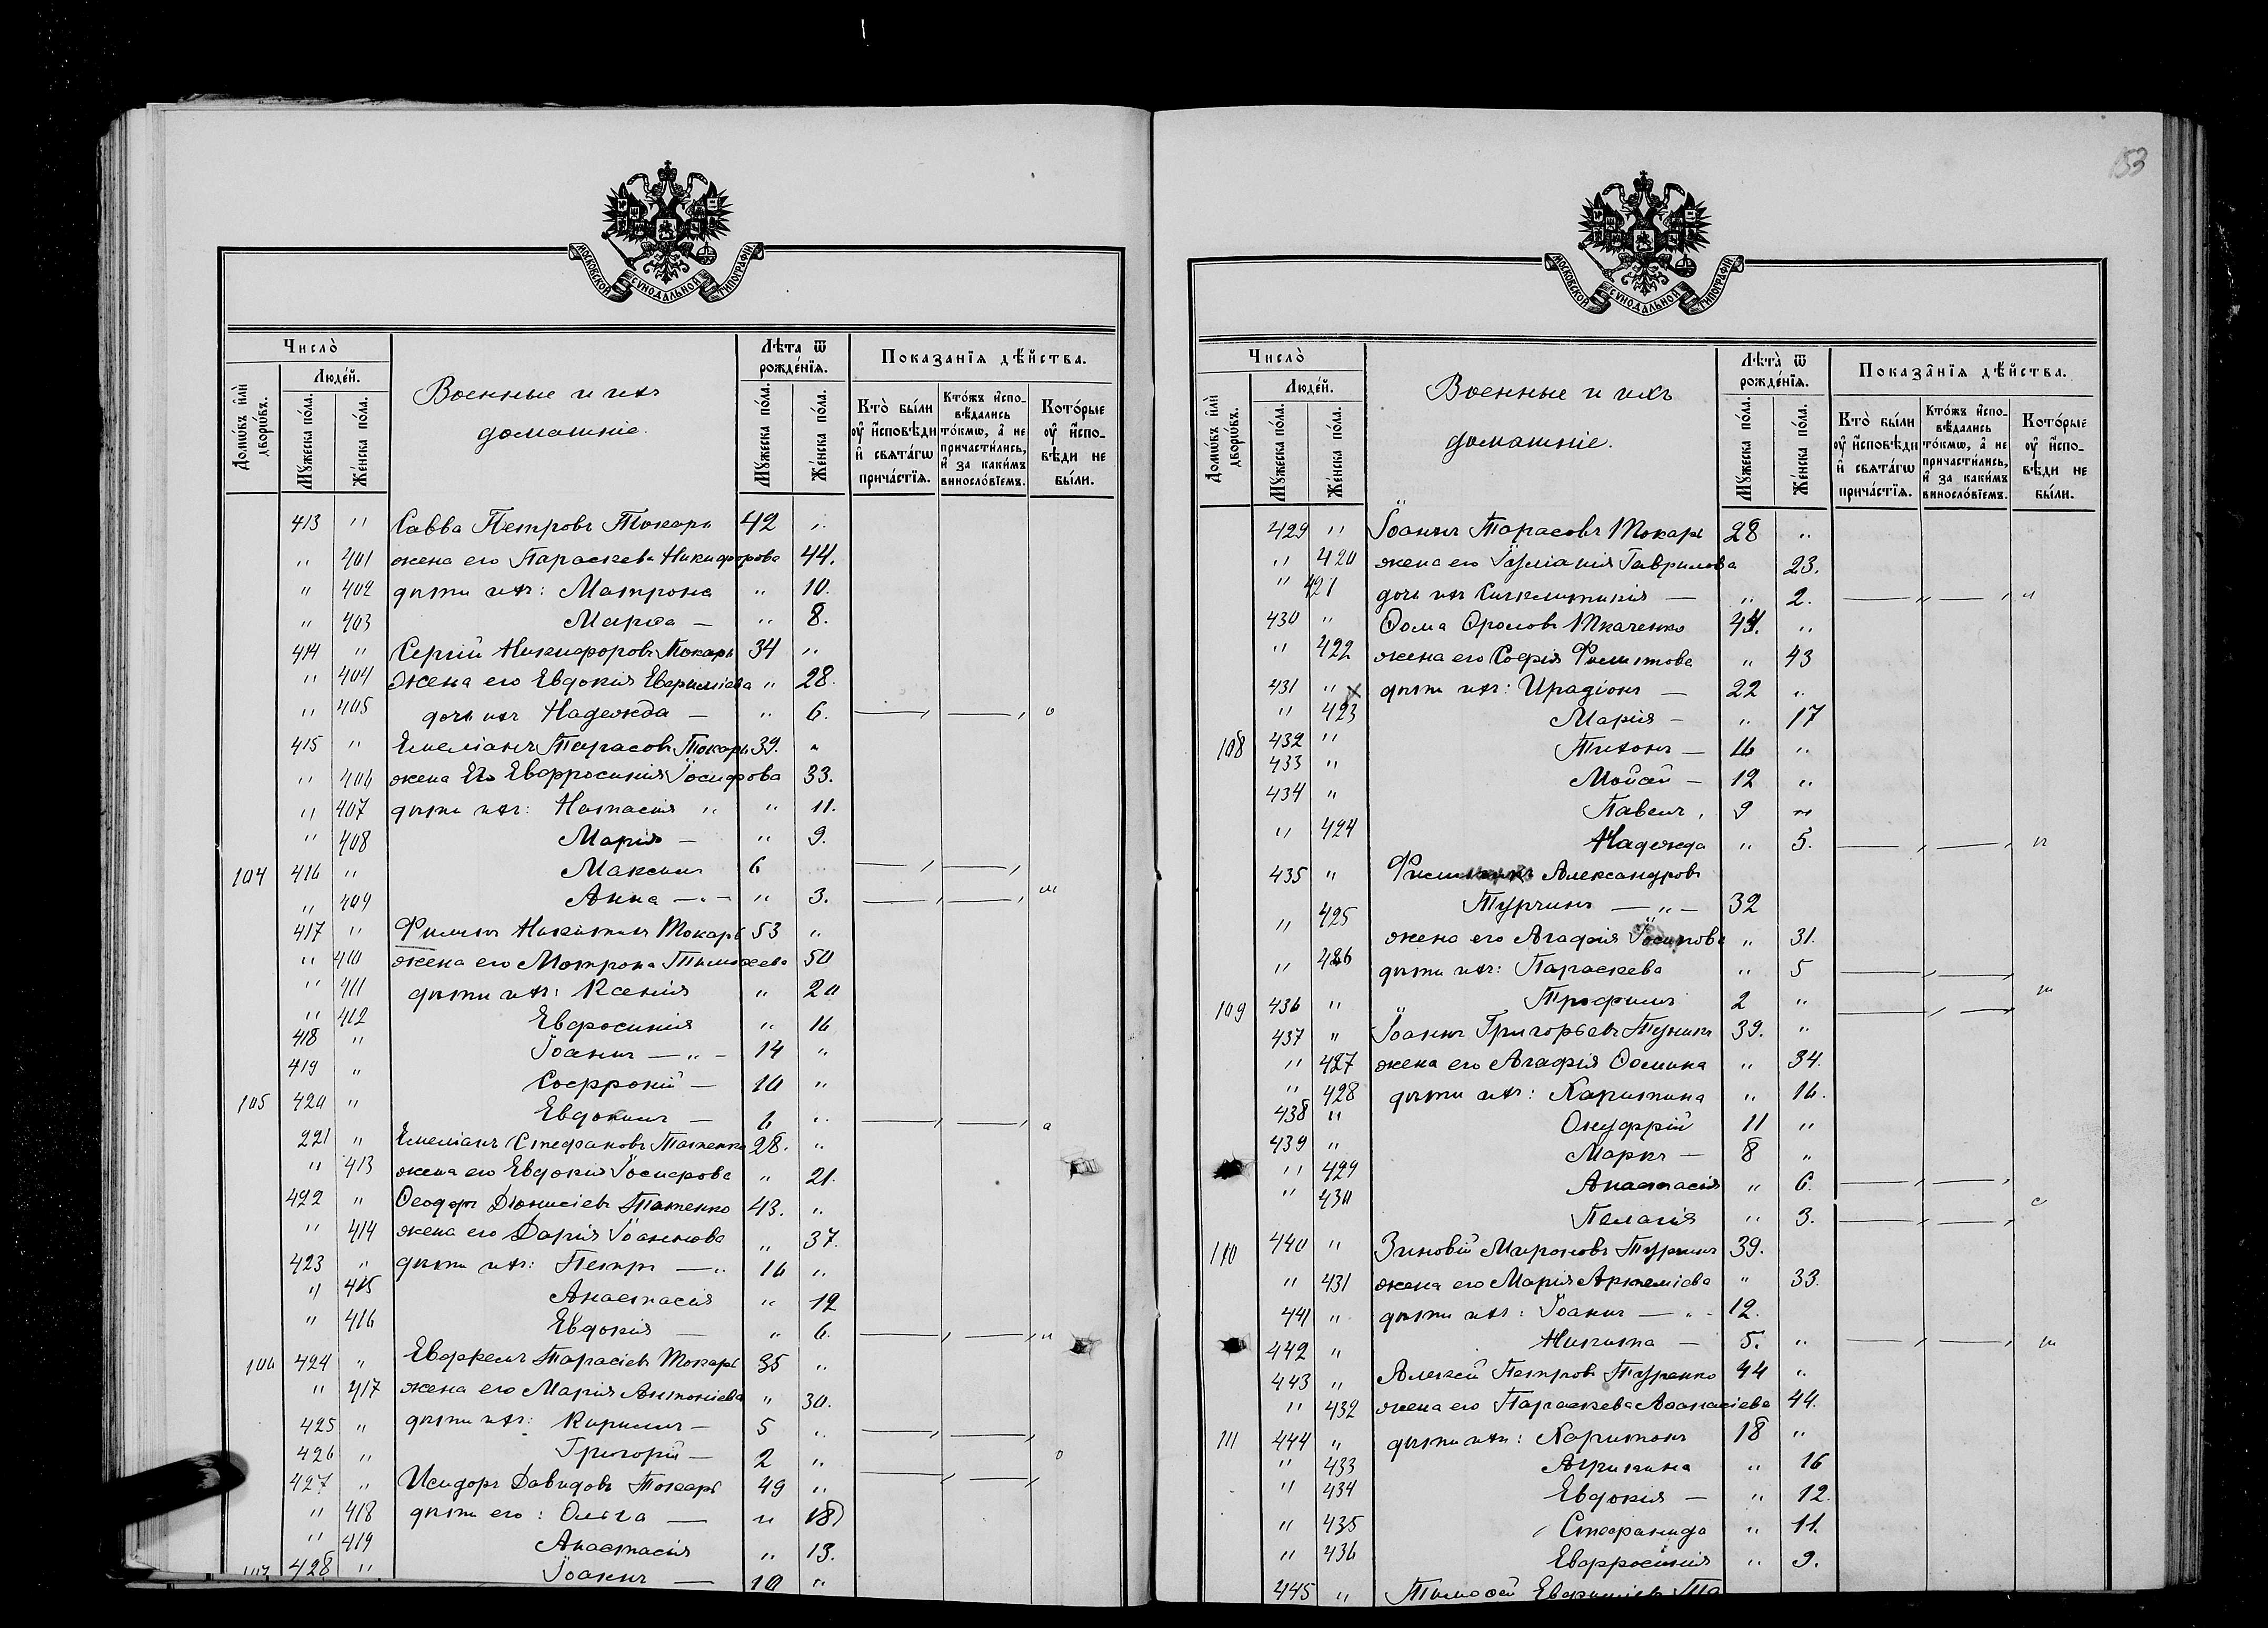 153
МОСКОВСКОЙ СѴНОДАЛЬНОЙ ТИПОГРАФІИ
Число̀
Домѡ́въ и҆лѝ дворѡ́въ.
Люде́й.
Мꙋ́жеска по́ла.
Же́нска по́ла.
Военные и ихъ
домашніе.
Лѣ́та ѿ рожде́нїѧ.
Мꙋ́жеска по́ла.
Же́нска по́ла.
Показа́нїѧ дѣ́йства.
Кто̀ бы́ли ᲂу҆ и҆сповѣди и҆ свѧта́гѡ прича́стїѧ.
Кто́жъ и҆спо-вѣ́дались то́кмѡ, а҆ не причасти́лись, и҆ за каки́мъ винослѡ́вїемъ.
Кото́рые ᲂу҆ и҆спо-вѣди не бы́ли.
413 " Савва Петровъ Токарь 42 "
" 401 жена его Параскева Никифорова 44.
" 402 дѣти ихъ: Матрона " 10.
" 403 Марѳа — " 8.
414 " Сергій Никифоровъ Токарь 34 "
" 404 жена его Евдокія Евфиміева " 28.
" 405 дочь ихъ Надежда — " 6.
415 " Емеліанъ Тарасовъ Токарь 39. "
" 406 жена Его Евфросинія Іосифова 33.
" 407 дѣти ихъ: Натасія " " 11.
" 408 Марія — " 9.
104 416 " Максимъ 6
" 409 Анна — " — " 3.
417 " Филипъ Никитинъ Токарь 53 "
" 410 жена его Мотрона Тимоѳеева 50
" 411 дѣти ихъ: Ксенія " 20
" 412 Евфросинія " 16
418 " Іоаннъ — " — 14 "
419 " Софроній — 10 "
105 420 " Евдокимъ — 6 "
221 " Емеліанъ Стефановъ Татенко 28. "
" 413 жена его Евдокія Іосифова " 21.
422 " Ѳеодоръ Діонисіевъ Татенко 43. "
" 414 жена его Дарія Іоаннова " 37.
423 " дѣти ихъ: Петръ — " 16 "
" 415 Анастасія " 12
" 416 Евдокія — " 6.
106 424 " Тарасіевъ Токарь 35 "
" 417 жена его Марія Антоніева " 30.
425 " дѣти ихъ: Кириллъ — 5 "
426 " Григорій — 2 "
427 " Исидоръ Давидовъ Токарь 49 "
" 418 дѣти его: Ольга — " 18
" 419 Анастасія " 13.
107 428 " Іоаннъ — 10 "
МОСКОВСКОЙ СѴНОДАЛЬНОЙ ТИПОГРАФІИ
Число̀
Домѡ́въ и҆лѝ дворѡ́въ.
Люде́й.
Мꙋ́жеска по́ла.
Же́нска по́ла.
Военные и ихъ
домашніе.
Лѣ́та̀ ѿ рожде́нїѧ.
Мꙋ́жеска по́ла.
Же́нска по́ла.
Показа́нїѧ дѣ́йства.
Кто̀ бы́ли ᲂу҆ и҆сповѣди и҆ свѧта́гѡ прича́стїѧ.
Кто́жъ и҆спо-вѣ́дались то́кмѡ, а҆ не причасти́лись, и҆ за каки́мъ винослѡ́вїемъ.
Кото́рые ᲂу҆ и҆спо-вѣди не бы́ли.
429 " Іоаннъ Тарасовъ Токарь 28 "
" 420 жена его Іуліанія Гаврилова 23.
" 421 дочь ихъ Синклитикія — " 2.
430 " Ѳома Фроловъ Ткаченко "
" 422 жена его Софія " 43
431 " дѣти ихъ: Иродіонъ — 22 "
" 423 Марія — " 17
108 432 " Тихонъ — 16 "
433 " Мойсей — 12 "
434 " Павелъ 9 "
" 424 Надежда " 5.
435 " Александровъ
Турчинъ — " — 32
" 425 жена его Агафія " 31.
" 426 дѣти ихъ: Параскева " 5
109 436 " Трофимъ 2 "
437 " Іоаннъ Григорьевъ 39. "
" 427 жена его Агафія Ѳомина " 34.
" 428 дѣти ихъ: Харитина " 16.
438 " Онуфрій 11 "
439 " Маркъ — 8 "
" 429 Анастасія " 6.
" 430 Пелагія " 3.
110 440 " Зиновій Мироновъ Турчинъ 39.
" 431 жена его Марія Артеміева " 33.
441 " дѣти ихъ: Іоаннъ — " — 12.
442 " Никита — 5. "
443 " Алексѣй Петровъ Туренко 44 "
" 432 жена его Параскева Аѳанасіева 44.
111 444 " дѣти ихъ: Харитонъ 18 "
" 433 Агрипина " 16
" 434 Евдокія — " 12.
" 435 Стефанида " 11.
" 436 Евфросинія " 9.
445 " Тимоѳей